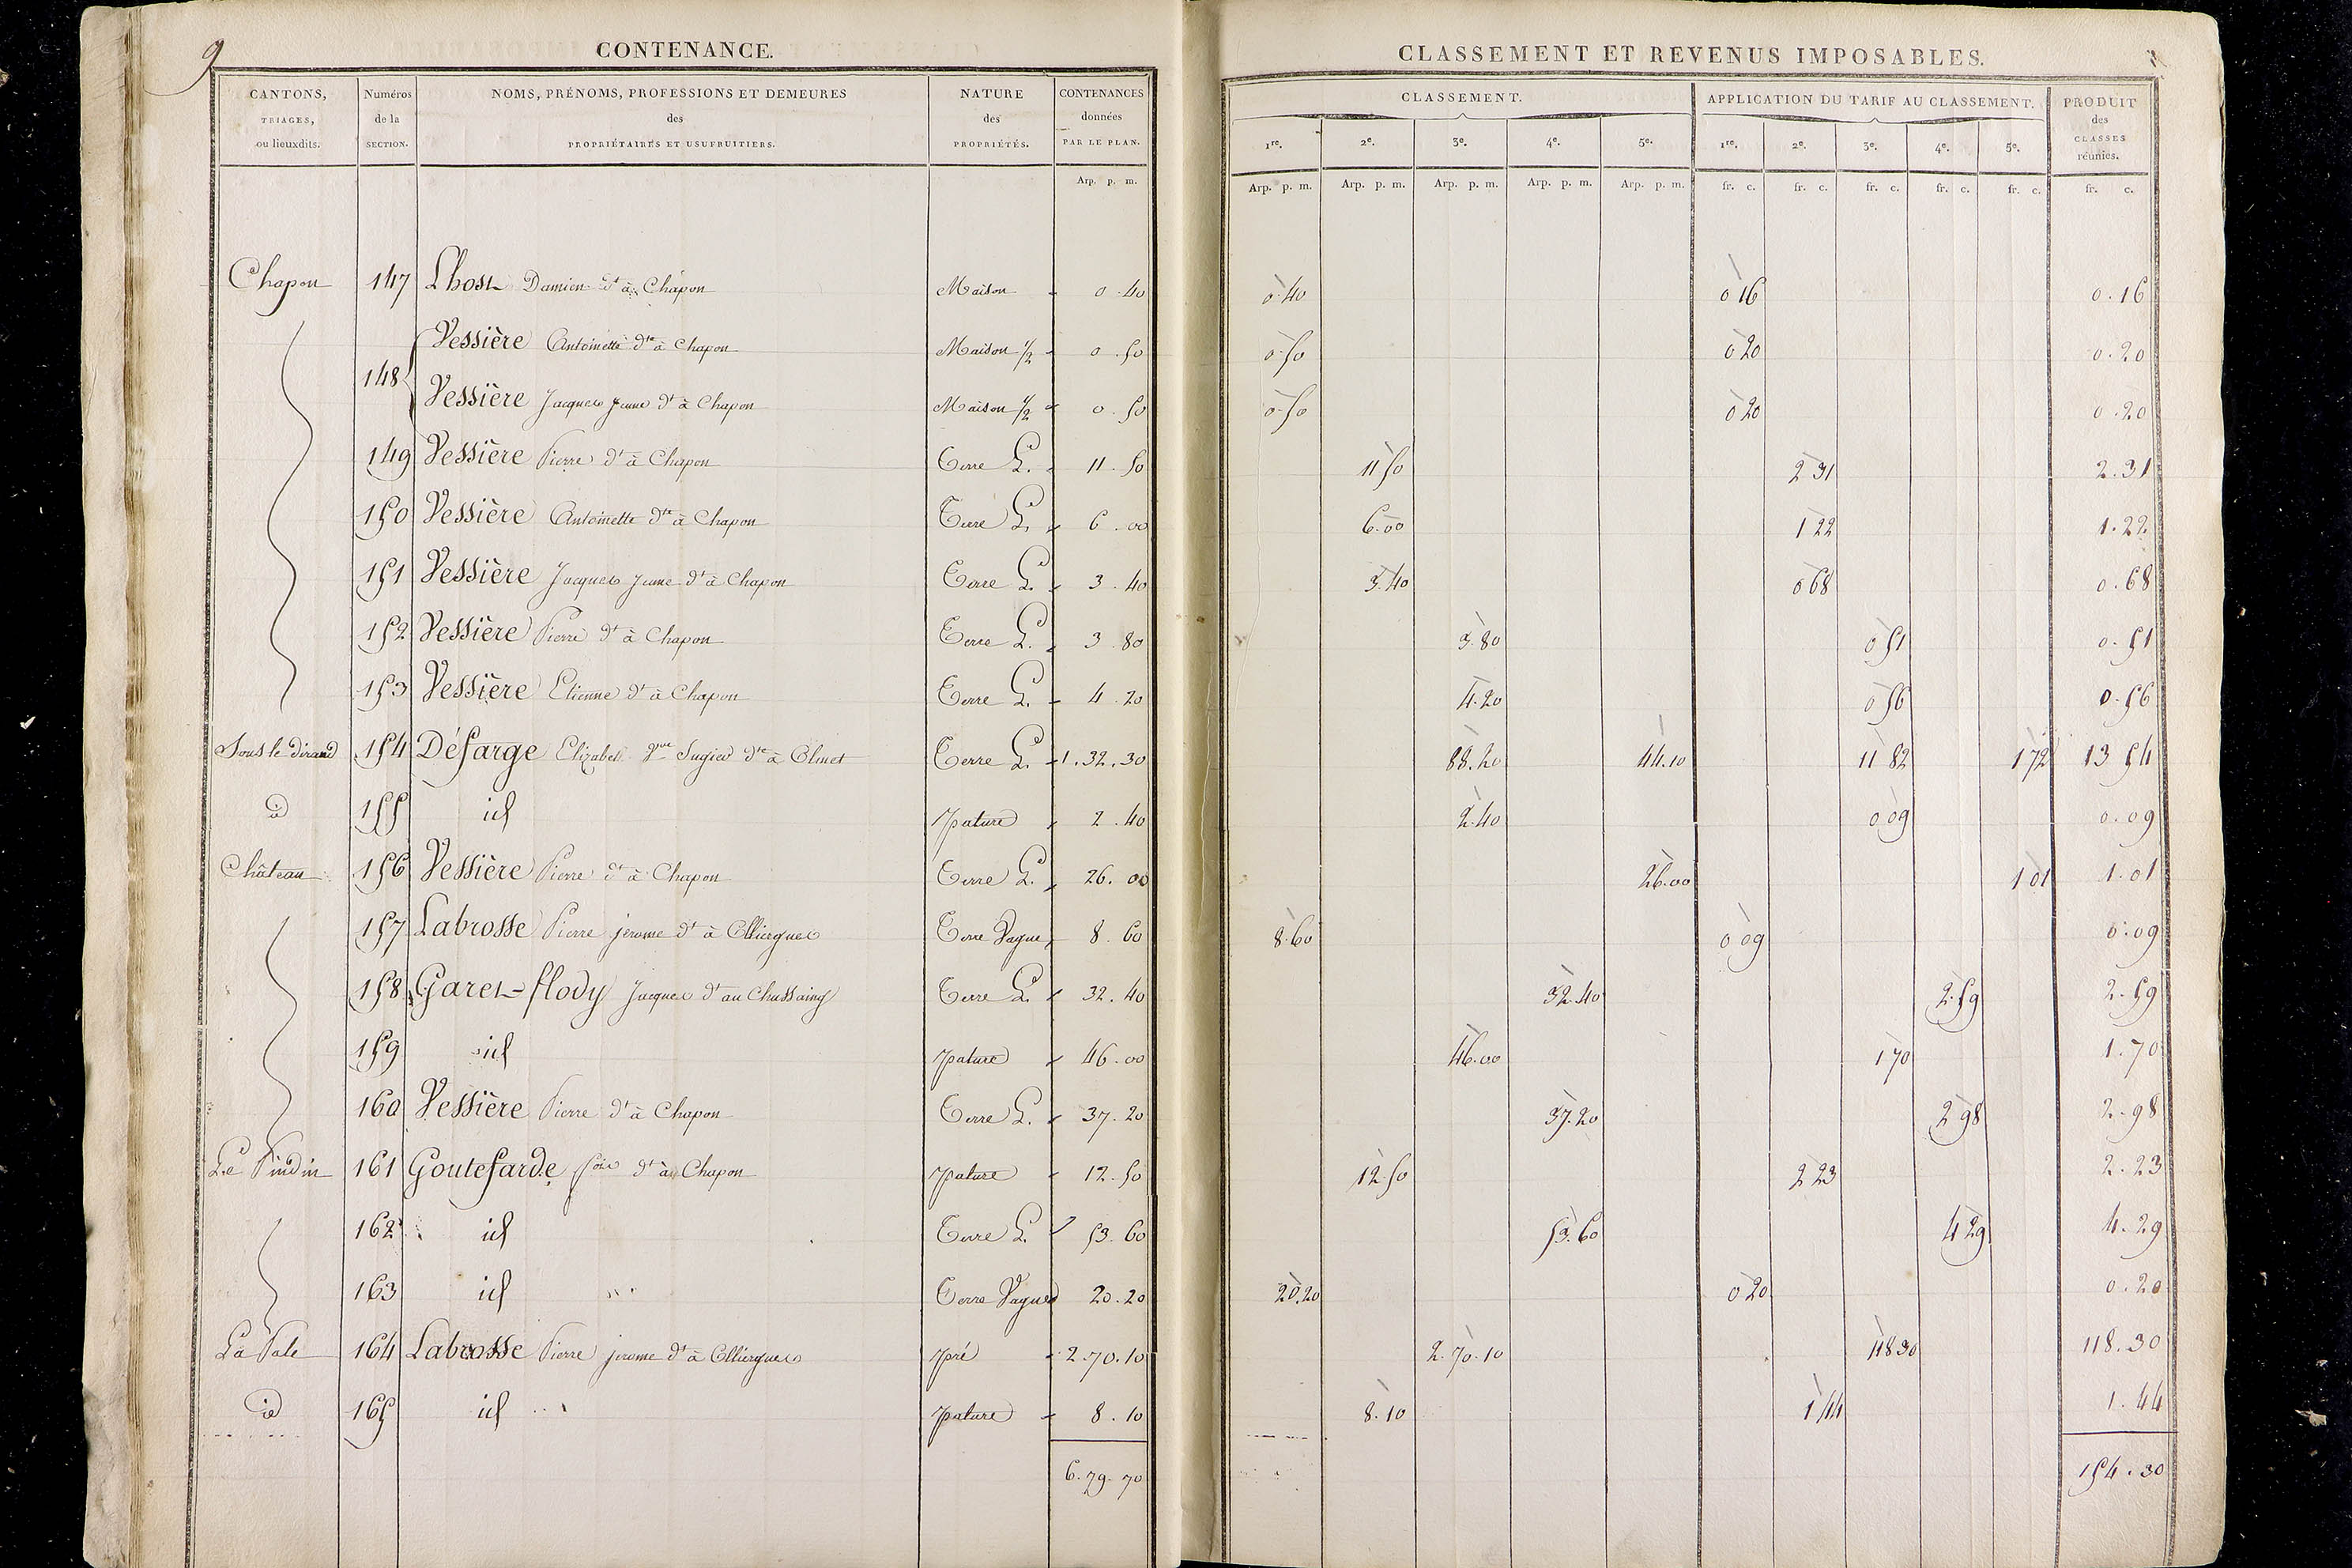 9
CONTENANCE.
CANTONS, TRIAGES, ou lieuxdits. Numéros de la SECTION. NOMS, PRÉNOMS, PROFESSIONS ET DEMEURES des PROPRIÉTAIRES ET USUFRUITIERS. NATURE des PROPRIÉTÉS. CONTENANCES données PAR LE PLAN.
Arp. p. m.
CLASSEMENT ET REVENUS IMPOSABLES.
CLASSEMENT. APPLICATION DU TARIF AU CLASSEMENT. PRODUIT des CLASSES réunies.
1re. 2e. 3e. 4e. 5e. 1re. 2e. 3e. 4e. 5e.
Arp. p. m. Arp. p. m. Arp. p. m. Arp. p. m. Arp. p. m. fr. c. fr. c. fr. c. fr. c. fr. c. fr. c.
Chapon 147 Lhost Damien dt à Chapon Maison 0.40 0.40 0 16 0.16
148 Vessière Antoinette dte à Chapon Maison 1/2 0.50 0.50 0 20 0.20
Vessière Jacques jeune dt à Chapon Maison 1/2 0.50 0.50 0 20 0.20
149 Vessière Pierre dt à Chapon Terre L. 11.50 11 50 2 31 2.31
150 Vessière Antoinette dte à Chapon Terre L. 6.00 6.00 1 22 1.22
151 Vessière Jacques jeune dt à Chapon Terre L. 3.40 3.40 0 68 0.68
152 Vessière Pierre dt à Chapon Terre L. 3.80 3.80 0 51 0.51
153 Vessière Etienne dt à Chapon Terre L. 4.20 4.20 0 56 0.56
Sous le 154 Défarge Elizabeth Vve dte à Olmet Terre L. 1.32.30 88.20 44.10 11 82 1 72 13 54
id 155 id pature 2.40 2.40 0 09 0.09
Château 156 Vessière Pierre dt à Chapon Terre L. 26.00 26.00 1 01 1.01
157 Labrosse Pierre jerome dt à Olliergues Terre Vague 8.60 8.60 0 09 0.09
158 Garet-flody Jacques dt au Chassaing Terre L. 32.40 32.40 2.59 2.59
159 id pature 46.00 46.00 1 70 1.70
160 Vessière Pierre dt à Chapon Terre L. 37.20 37.20 2 98 2.98
Le 161 Goutefarde dt à Chapon pature 12.50 12.50 2 23 2.23
162 id Terre L. 53.60 53.60 4 29 4.29
163 id Terre Vague 20.20 20.20 0 20 0.20
La 164 Labrosse Pierre jerome dt à Olliergues pré 2.70.10 2.70.10 118 30 118.30
id 165 id pature 8.10 8.10 1 44 1.44
6.79.70 154.30